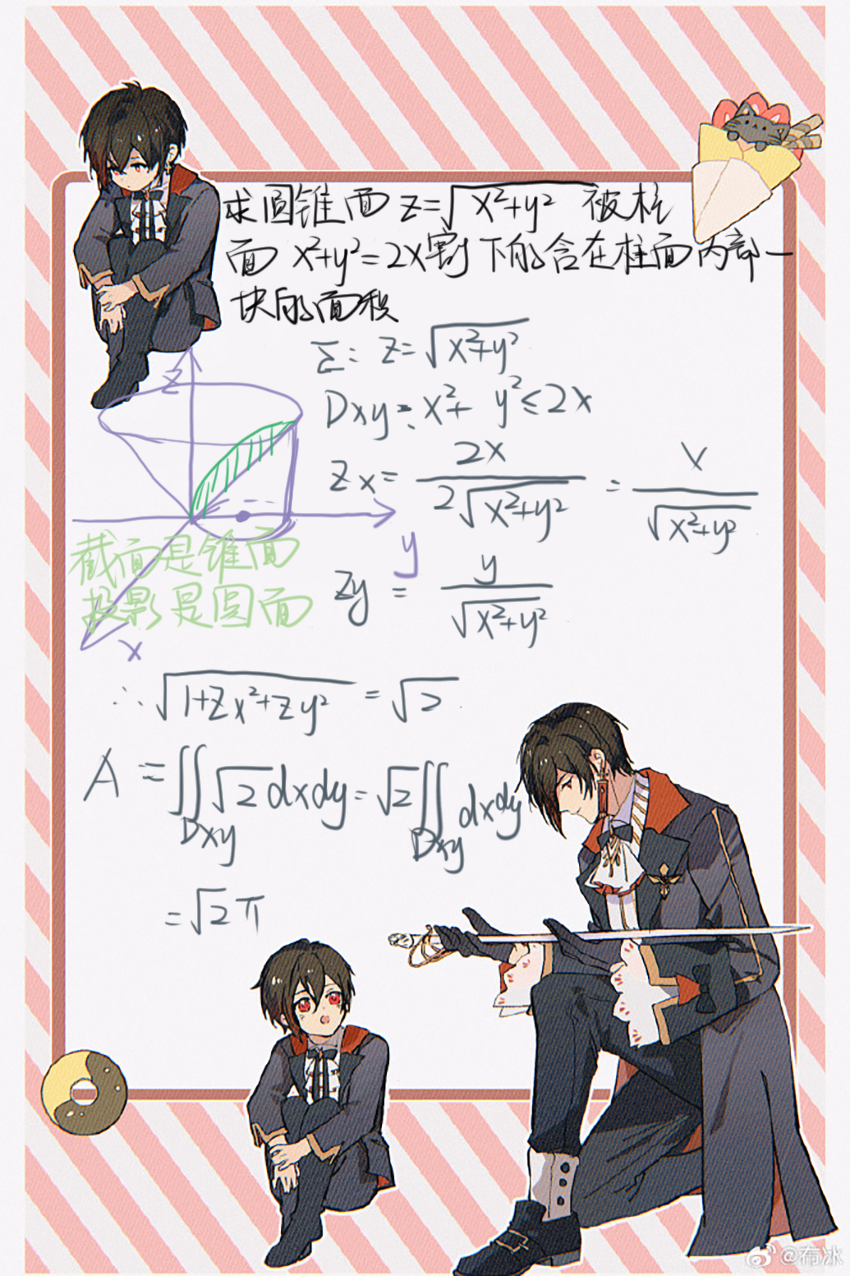 求圆锥面 z=√(x²+y²) 被柱
面 x²+y²=2x割下的含在柱面内部一
块的面积
Σ: z=√(x²+y²)
Dxy: x²+y²≤2x
Zx = 2x/(2√(x²+y²)) = x/√(x²+y²)
Zy = y/√(x²+y²)
z
y
x
截面是锥面
投影是圆面
∴ √(1+Zx²+Zy²) = √2
A = ∬Dxy √2 dxdy = √2 ∬Dxy dxdy
= √2 π
@布冰